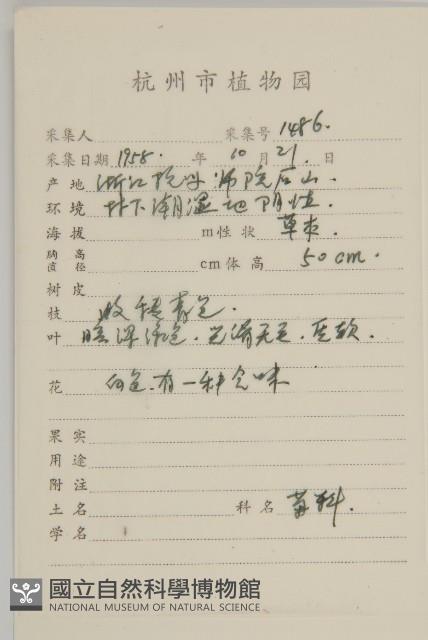 杭州市植物园
采集人 采集号 1486.
采集日期 1958. 年 10 月 21. 日
产地 浙江 师院后山.
环境 林下潮湿地阴性.
海拔 m性状 草本.
胸高直径 cm体高 50cm.
树皮
枝 青色.
叶 光滑无毛.质软.
花 白色.有一种 味
果实
用途
附注
土名 科名 科.
学名
國立自然科學博物館
NATIONAL MUSEUM OF NATURAL SCIENCE